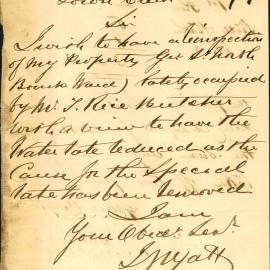 Town Clerk
Sir
I wish to have a inspection
of my Property Geo St North
Bourke Ward) lately occupied
by Mr T. Rice Butcher
with a view to have the
Water rate reduced as the
Cause for the Special
rate has been removed
I am
Your Obedt. Servt.
J Myatt